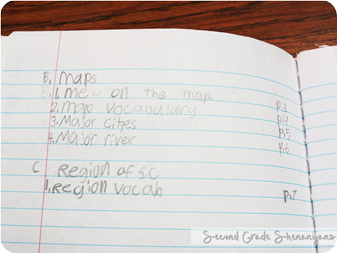 B. Maps
1. me on the map p.3
2. map vocabulary p.4
3. Major cities p.5
4. Major river p.6
C Region of S.C
1. Region vocab p.7
Second Grade Shenanigans